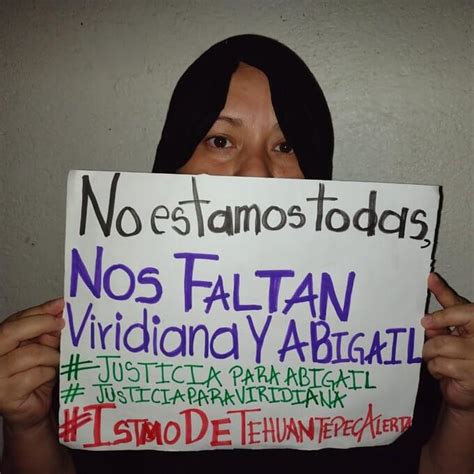 No estamos todas,
NOS FALTAN
Viridiana Y ABIGAIL
#JUSTICIA PARA ABIGAIL
#JUSTICIAPARAVIRIDIANA
#ISTMODETEHUANTEPECALERTA